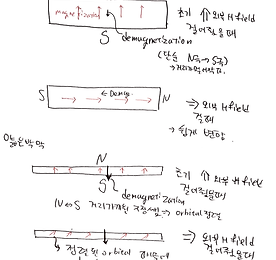 magnetization
초기 외부 H field
걸어줬을때
S
demagnetization
(단순 N극 → S극)
S
← Demag.
N
⇒ 외부 H field
걸어
⇒ 쉽게 변함.
얇은박막
N
초기 외부 H field
걸어줬을때
S
demagnetization
N↔S 거리가 → orbital 정렬
⇒ 외부 H field
걸어줬을때
정렬된 orbital 때문에